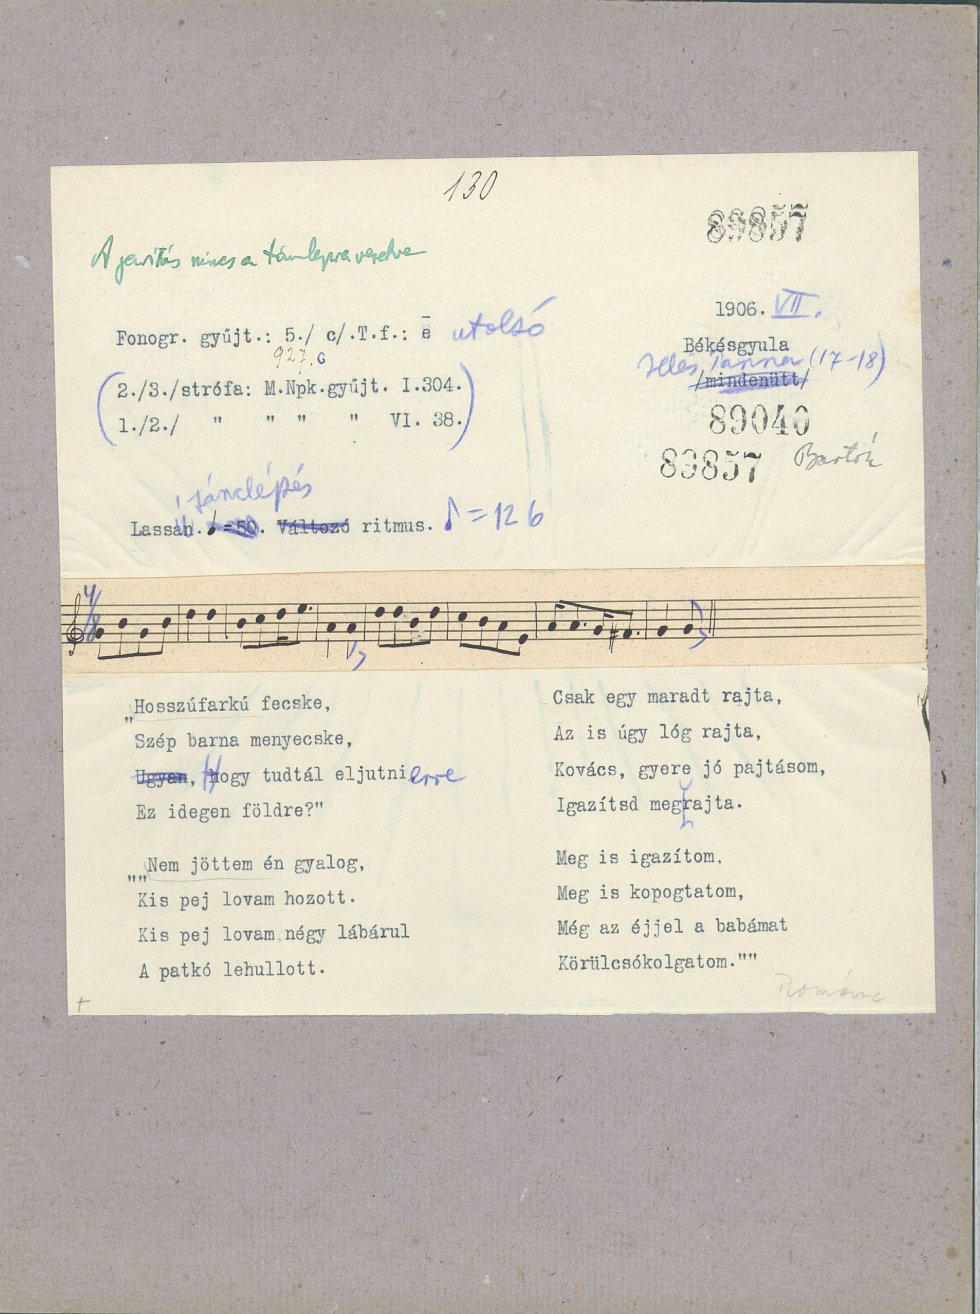 130
89857
A javítás nincs a támlapra vezetve
1906. VII.
Fonogr. gyűjt.: 5./ c/.T.f.: ē utolsó
927. c
Békésgyula
(17-18)
/mindenütt/
(2./3./strófa: M.Npk.gyűjt. I.304.
1./2./ " " " " VI. 38.)
89040
83857 Bartók
tánclépés
Lassan. ♩=50. Változó ritmus. ♪=126
4/8
"Hosszúfarkú fecske,
Szép barna menyecske,
Ugyan, Hogy tudtál eljutni erre
Ez idegen földre?"
""Nem jöttem én gyalog,
Kis pej lovam hozott.
Kis pej lovam négy lábárul
A patkó lehullott.
Csak egy maradt rajta,
Az is úgy lóg rajta,
Kovács, gyere jó pajtásom,
Igazítsd megrajta.
Meg is igazítom,
Meg is kopogtatom,
Még az éjjel a babámat
Körülcsókolgatom.""